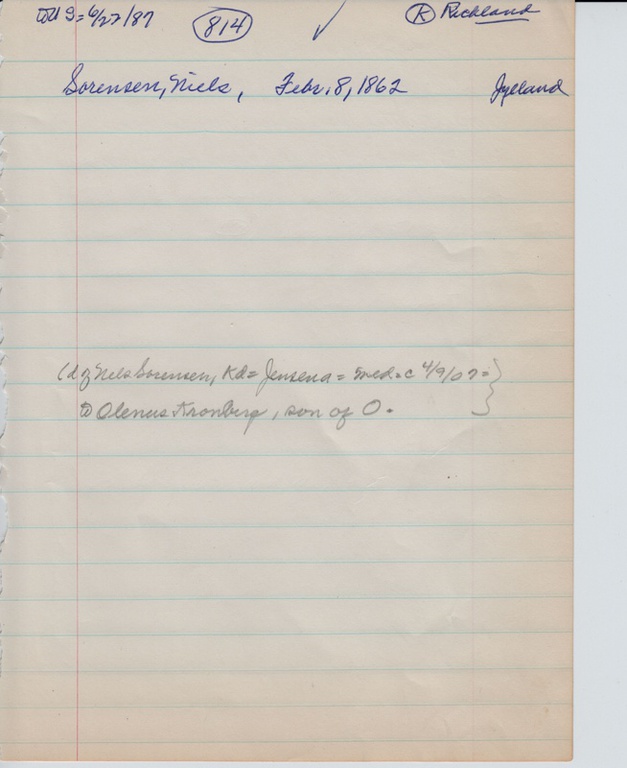 = 6/27/87 814 ✓ K Richland
Sorensen, Niels, Febr. 8, 1862 Jylland
(d of Nels Sorensen, Kd= Jensena = med. c 4/9/07 =
to Olenus Kronberg, son of O.